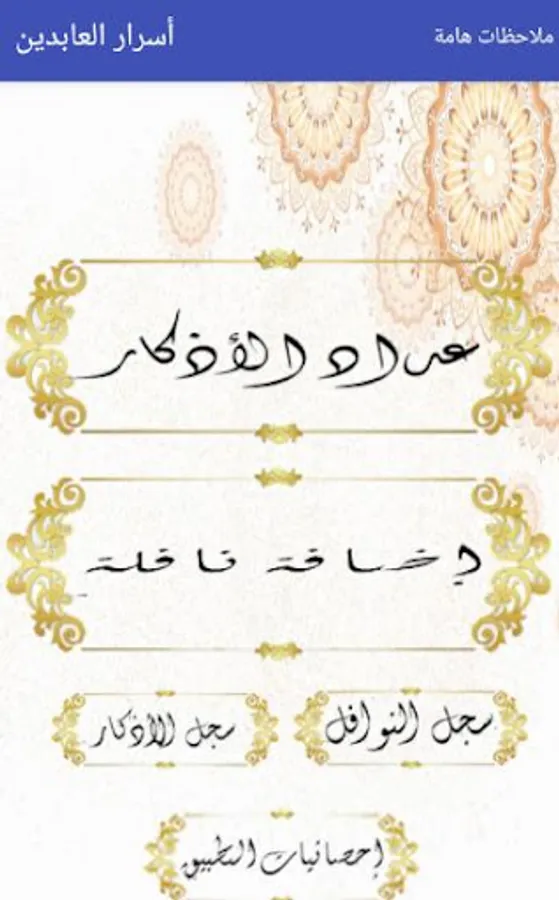 ملاحظات هامة
أسرار العابدين
عداد الأذكار
إضافة نافلة
سجل النوافل
سجل الأذكار
إحصائيات التطبيق